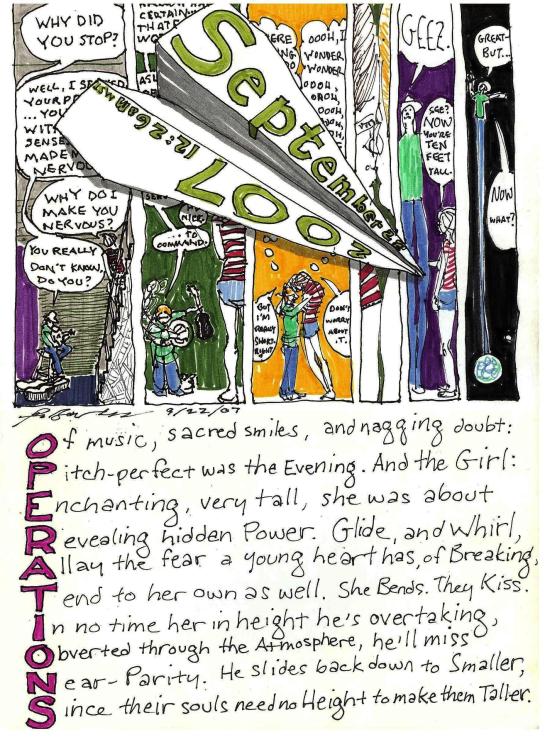 WHY DID
YOU STOP?
WELL, I
YOUR
... YOU
WITH
SENSE
MADE M
NERVOU
WHY DO I
MAKE YOU
NERVOUS?
YOU REALLY
DON'T KNOW,
DO YOU?
CERTAIN
THAT
... TO
COMMAND.
OOOH, I
WONDER
WONDER
OOOH,
OOOH,
September 22nd
2007
12:26am MST
BUT
I'M
REALLY
SHORT,
RIGHT?
DON'T
WORRY
ABOUT
IT.
GEEZ.
SEE?
NOW
YOU'RE
TEN
FEET
TALL.
GREAT-
BUT...
NOW
WHAT?
9/22/07
Of music, sacred smiles, and nagging doubt:
Pitch-perfect was the Evening. And the Girl:
Enchanting, very tall, she was about
Revealing hidden Power. Glide, and Whirl,
Allay the fear a young heart has, of Breaking,
Tend to her own as well. She Bends. They Kiss.
In no time her in height he's overtaking,
Obverted through the Atmosphere, he'll miss
Near-Parity. He slides back down to Smaller,
Since their souls need no Height to make them Taller.